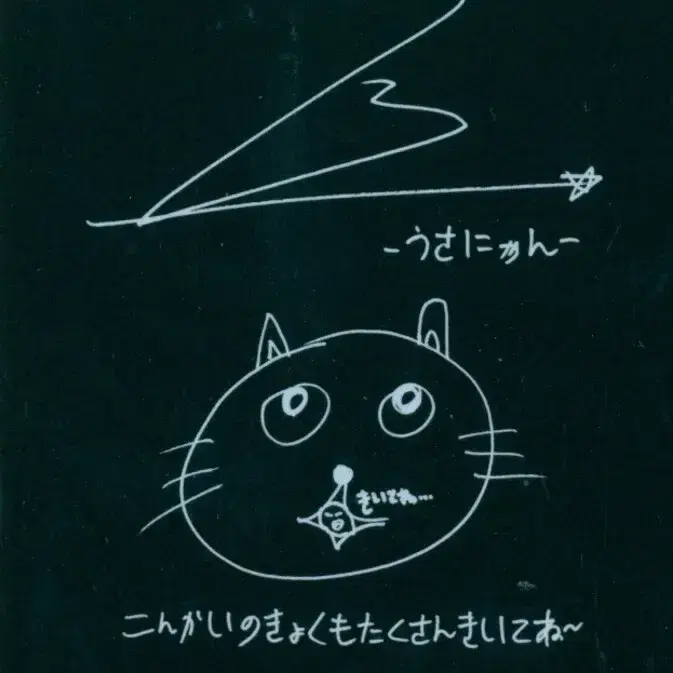 -うさにゃん-
きいてね…
こんかいのきょくもたくさんきいてね~